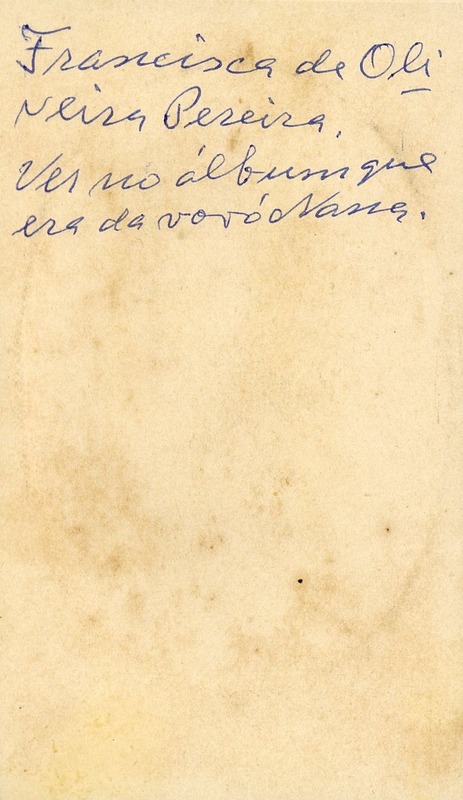 Francisca de Oli
veira Pereira.
Ver no álbum que
era da vovó Nana.